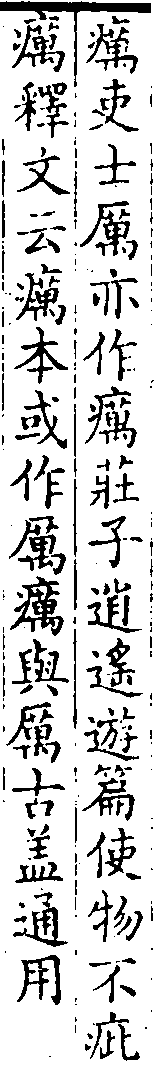 癘吏士厲亦作癘莊子逍遙遊篇使物不疵
癘釋文云癘本或作厲癘與厲古盖通用